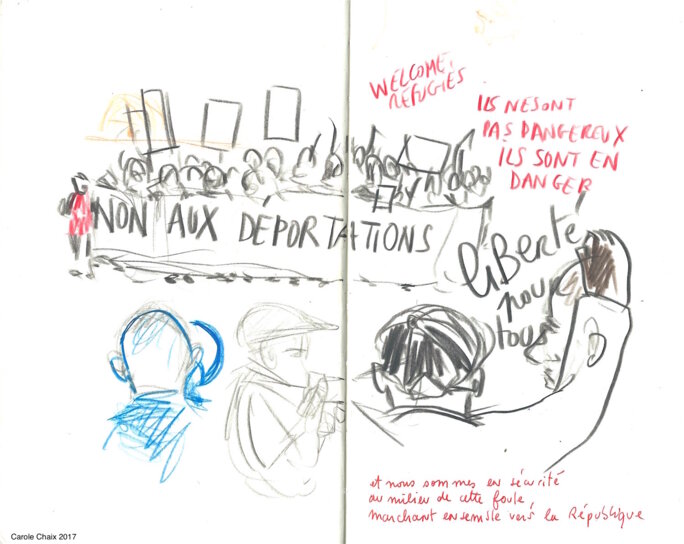 WELCOME,
REFUGIÉS
ILS NE SONT
PAS DANGEREUX
ILS SONT EN
DANGER
NON AUX DÉPORTATIONS
liBerté
pour
tous
et nous sommes en sécurité
au milieu de cette foule,
marchant ensemble vers la République
Carole Chaix 2017